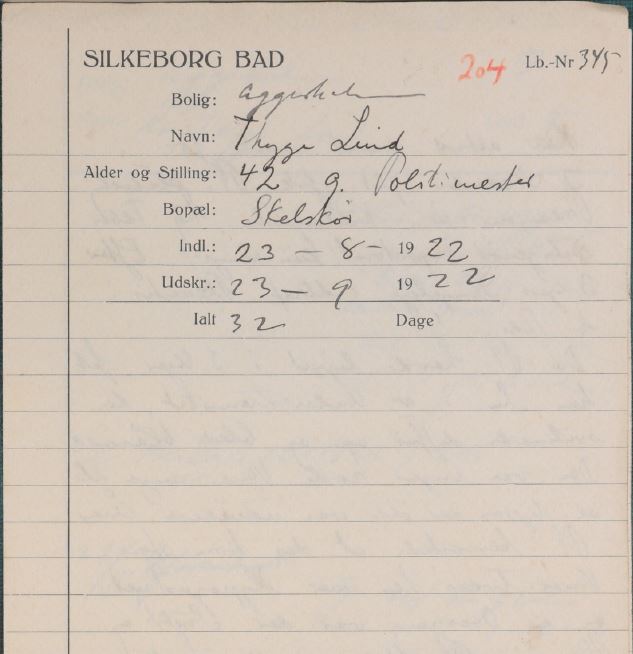 SILKEBORG BAD 204 Lb.-Nr 345
Bolig:
Navn: Thygge Lind
Alder og Stilling: 42 g. Politimester
Bopæl: Skelskør
Indl.: 23 - 8 - 1922
Udskr.: 23 - 9 1922
Ialt 32 Dage